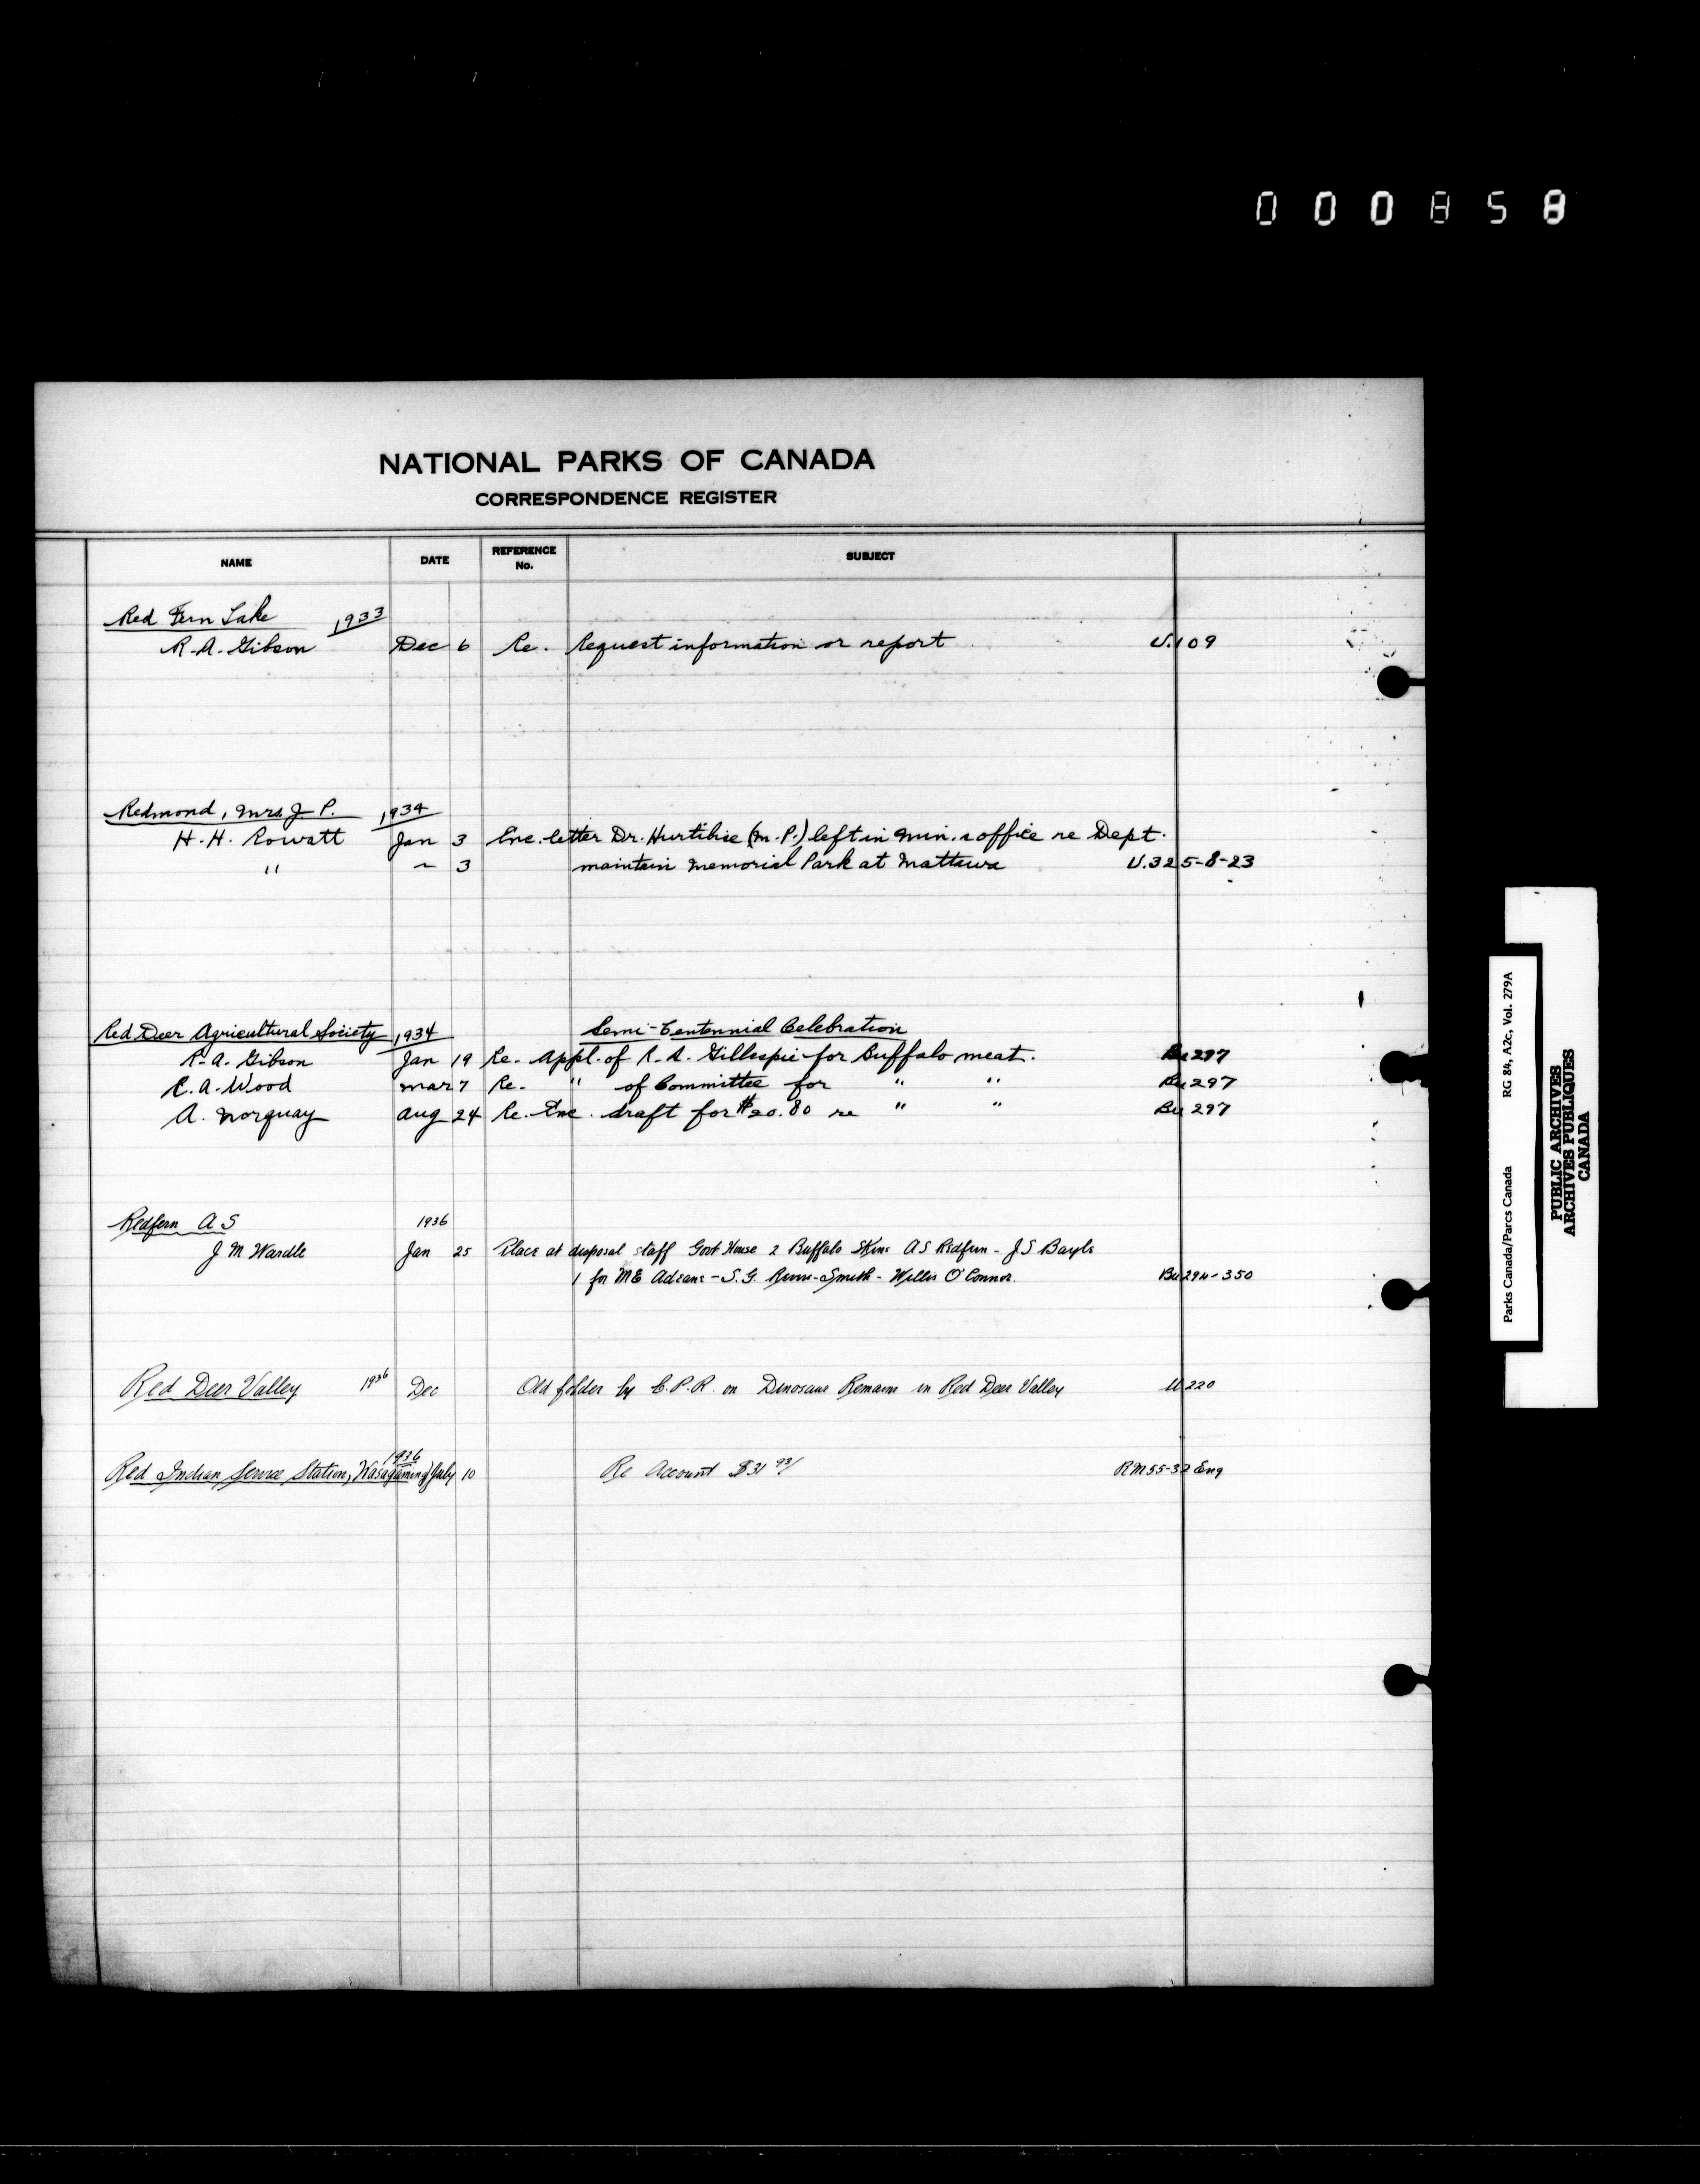 000858
NATIONAL PARKS OF CANADA
CORRESPONDENCE REGISTER
NAME DATE REFERENCE No. SUBJECT
Red Fern Lake 1933
R.A. Gibson Dec 6 Re. Request information or report U.109
Redmond, Mrs. J. P. 1934
H.H. Rowatt Jan 3 Enc. letter Dr. Hurtibie (M.P.) left in Min.s office re Dept.
" " 3 maintain Memorial Park at Mattawa U.325-8-23
Red Deer Agricultural Society 1934 Semi-Centennial Celebration
R.A. Gibson Jan 19 Re. Appl. of R.A. Gillespie for Buffalo meat. Bu 297
C.A. Wood Mar 7 Re. " of Committee for " " Bu 297
A. Norquay Aug 24 Re. Enc. draft for $20.80 re " " Bu 297
Redfern A S 1936
J M Wardle Jan 25 Place at disposal staff Govt House 2 Buffalo Skins A S Redfern - J S Bayls
1 for M E Adeane - S. G. Smith - Willis O'Connor. Bu 294-350
Red Deer Valley 1936 Dec Old folder by C.P.R. on Dinosaur Remains in Red Deer Valley U 220
Red Indian Service Station, Wasagaming 1936 July 10 Re Account $31 93/ RM55-32 Eng
Parks Canada/Parcs Canada RG 84, A2c, Vol. 279A
PUBLIC ARCHIVES
ARCHIVES PUBLIQUES
CANADA